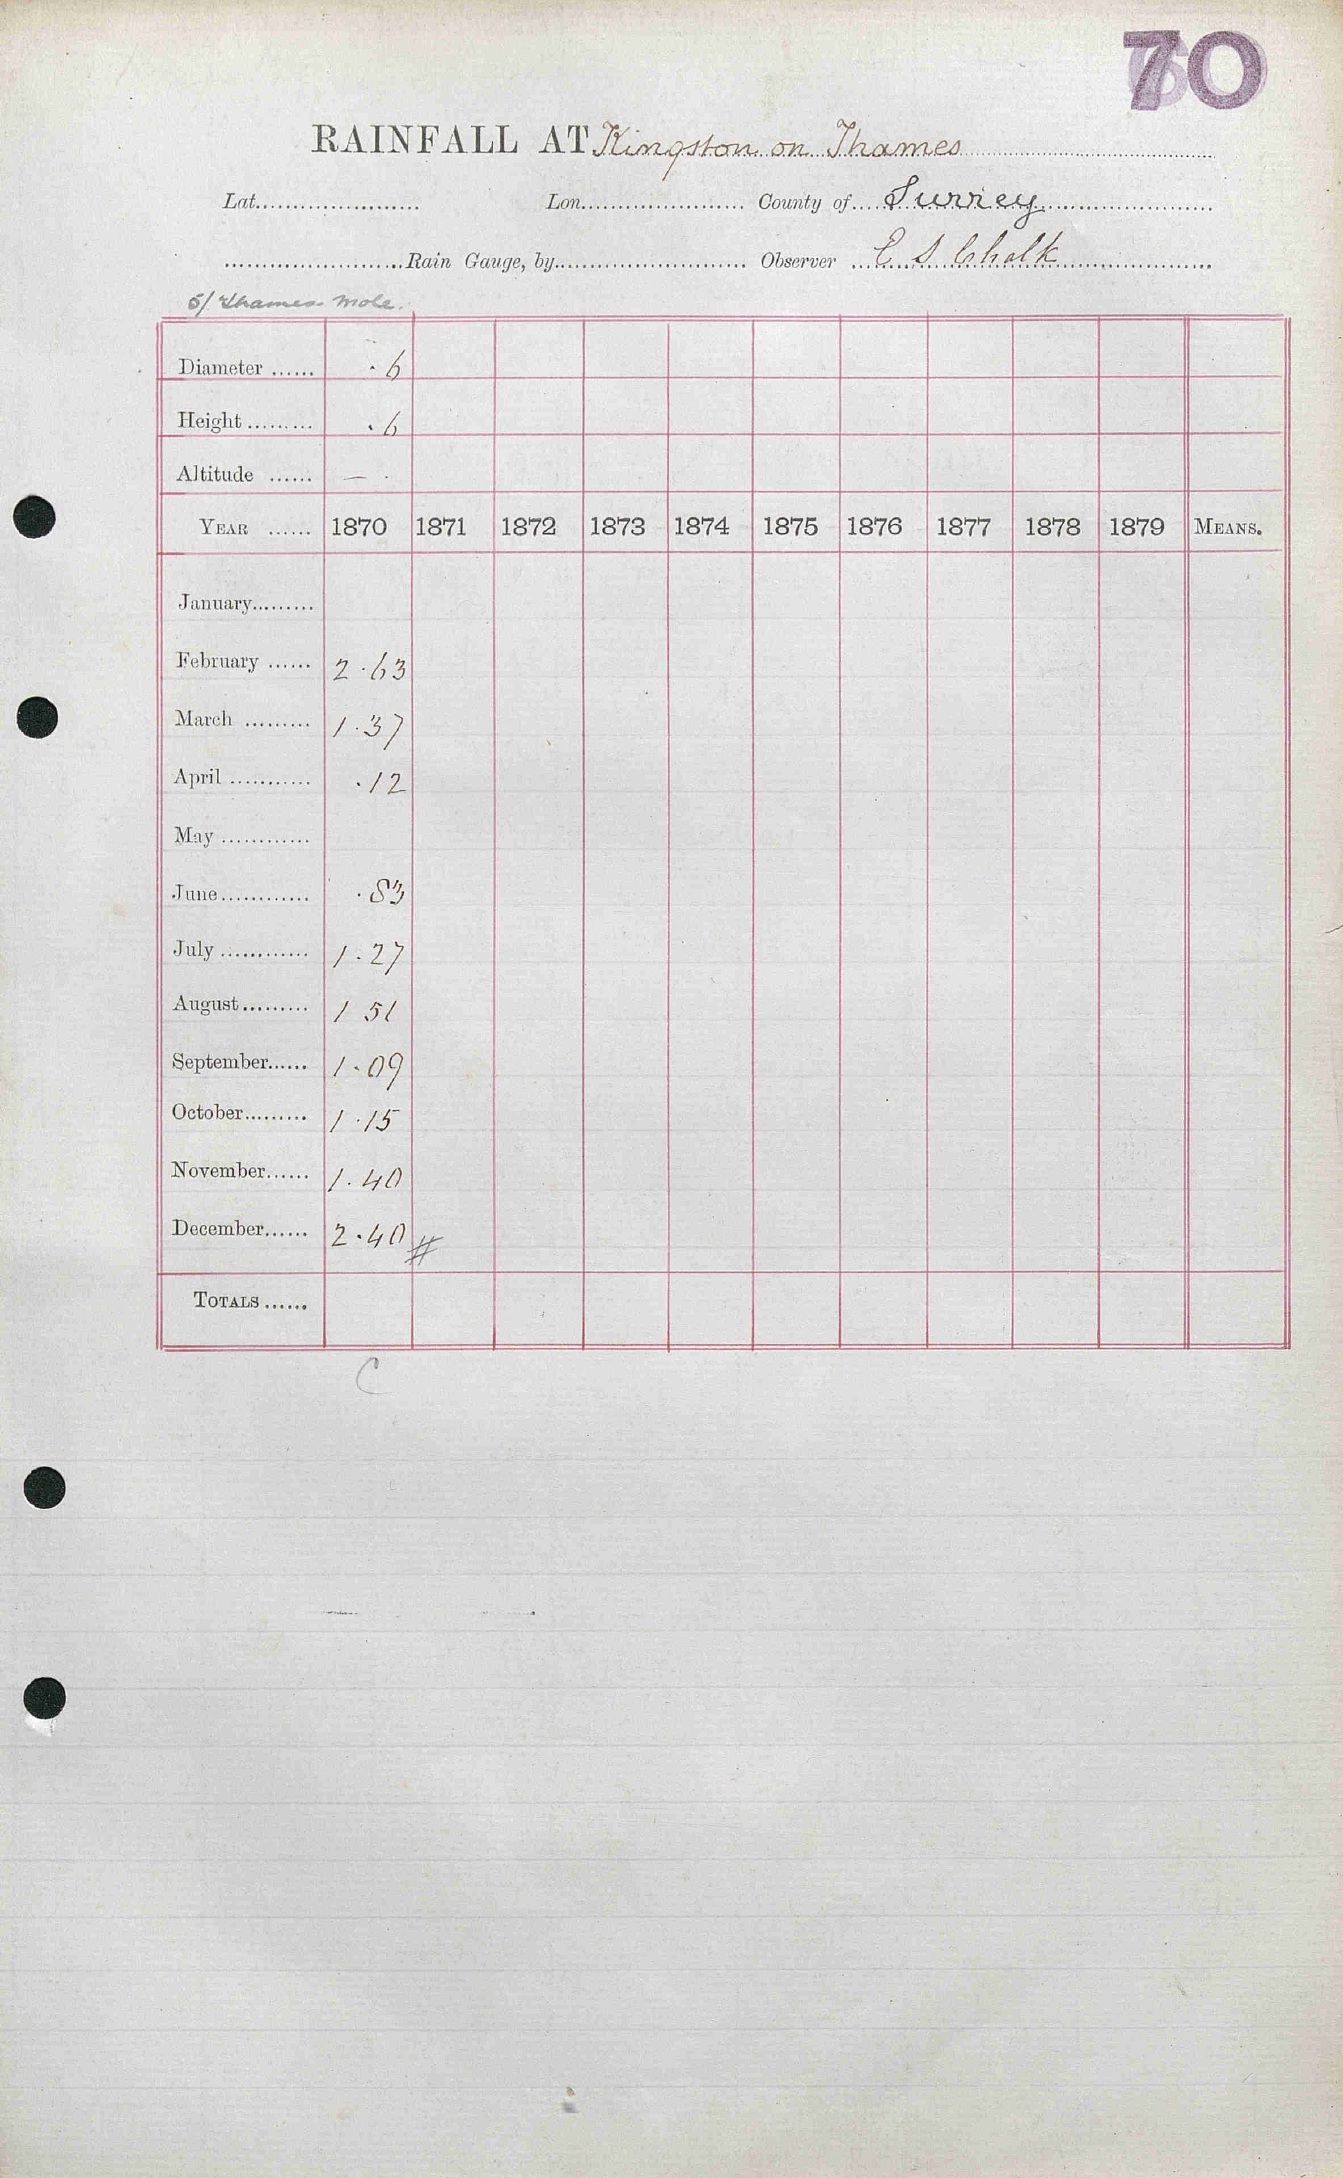 70
RAINFALL AT Kingston on Thames
Lat. Lon. County of Surrey
Rain Gauge, by Observer C S Chalk
5/ Thames. Mole.
Diameter ...... ·6
Height ......... ·6
Altitude ...... —
YEAR ...... 1870 1871 1872 1873 1874 1875 1876 1877 1878 1879 MEANS.
January.........
February ...... 2·63
March ......... 1·37
April ........... ·12
May ............
June............ ·83
July ............ 1·27
August......... 1 51
September...... 1·09
October......... 1·15
November...... 1·40
December...... 2·40 #
TOTALS ......
C